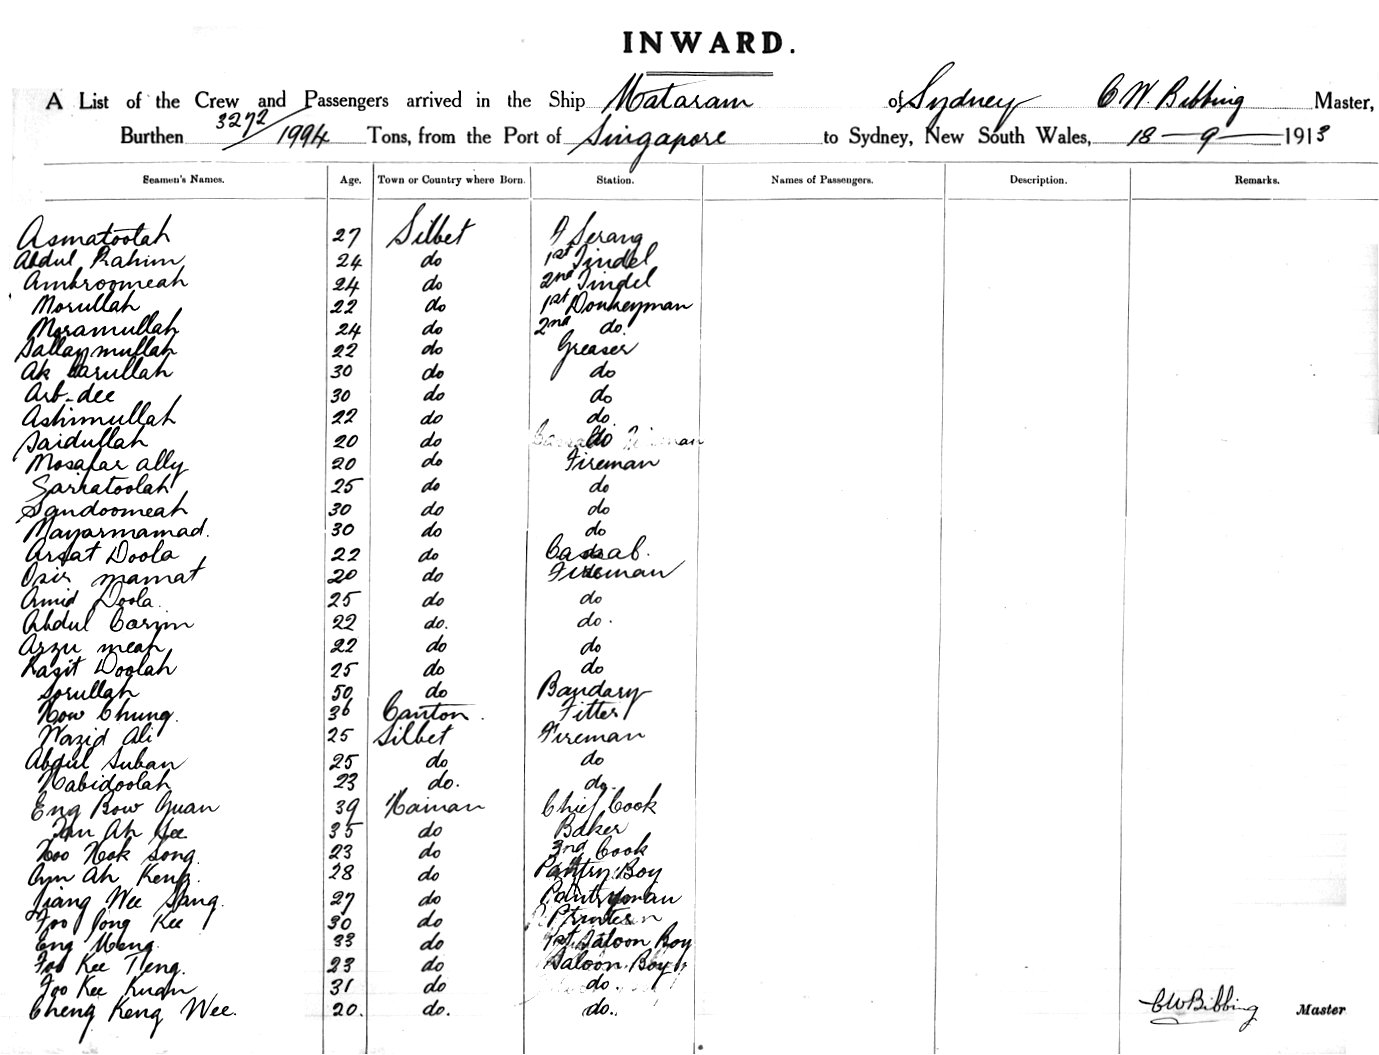 INWARD.
A List of the Crew and Passengers arrived in the Ship Mataram of Sydney C W. Bibbing Master,
Burthen 3272/1994 Tons, from the Port of Singapore to Sydney, New South Wales, 18-9-1913
Seamen's Names. Age. Town or Country where Born. Station. Names of Passengers. Description. Remarks.
Asmatoolah 27 Silbet Serang
Abdul Rahim 24 do 1st Tindel
Ambroomeah 24 do 2nd Tindel
Morullah 22 do 1st Donkeyman
Moramullah 24 do 2nd do.
Sallaymullah 22 do Greaser
Ak 30 do do
Arb-dee 30 do do
Ashimullah 22 do do.
Saidullah 20 do do
Mosafar ally 20 do Fireman
Sarratoolah 25 do do
Sandoomeah 30 do do
Mayarmamad. 30 do do
Arsat Doola 22 do Cassab.
Osir mamat 20 do Fireman
Amid Doola. 25 do do
Abdul Carim 22 do. do.
Arzu meah 22 do do
Kasit Doolah 25 do do
Sorullah 50 do Bandary
How Chung. 36 Canton. Fitter
Wazid Ali 25 Silbet Fireman
Abdul Suban 25 do do
Habidoolah 23 do. do.
Eng Bow Guan 39 Hainan Chief Cook
Ah 35 do Baker
Hoo Hok Song. 23 do 3rd Cook
Ah Keng. 28 do Pantry Boy
Wee Sang. 27 do Pantryman
Foo Jong Kee 30 do
Eng Meng. 33 do 1st Saloon Boy
Foo Kee Teng. 23 do Saloon Boy
Foo Kee Kuan 31 do do.
Cheng Keng Wee. 20. do. do.
C W Bibbing Master